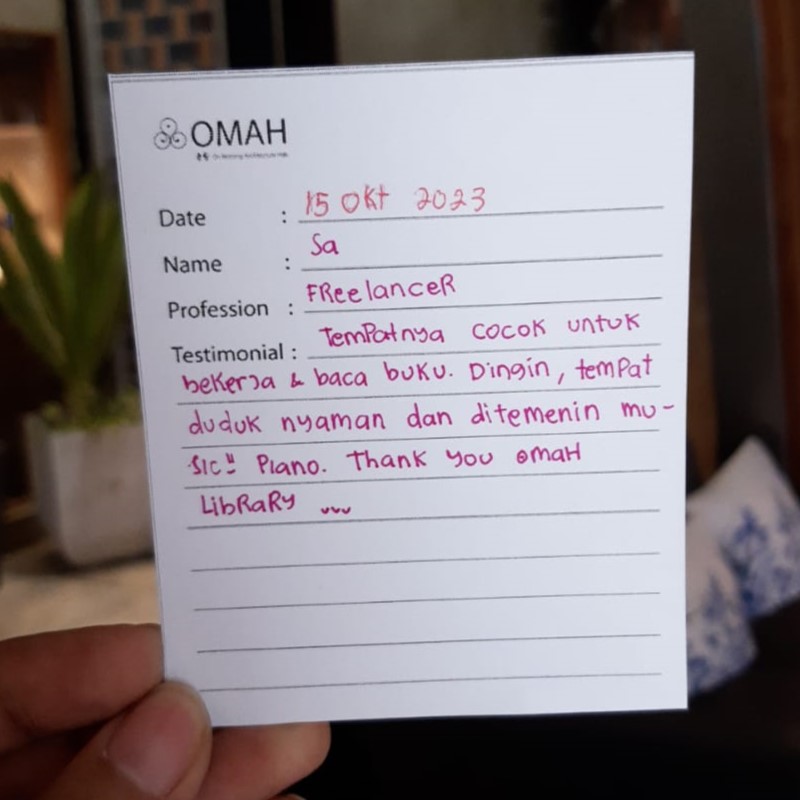 OMAH
Date : 15 Okt 2023
Name : Sa
Profession : FReelanceR
Testimonial : TemPatnya cocok untuk
bekerja & baca buku. Dingin, temPat
duduk nyaman dan ditemenin mu-
sic" Piano. Thank you omaH
LibRaRy